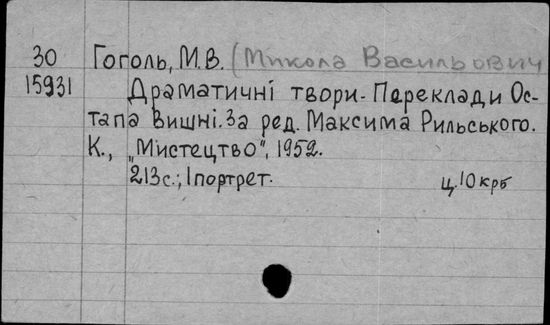 30 Гоголь, М.В. (Микола Васильович
15931 Драматичні твори. Переклади Ос-
тапа Вишні. За ред. Максима Рильського.
К., „Мистецтво", 1952.
213с.; 1портрет. ц. 10 крб